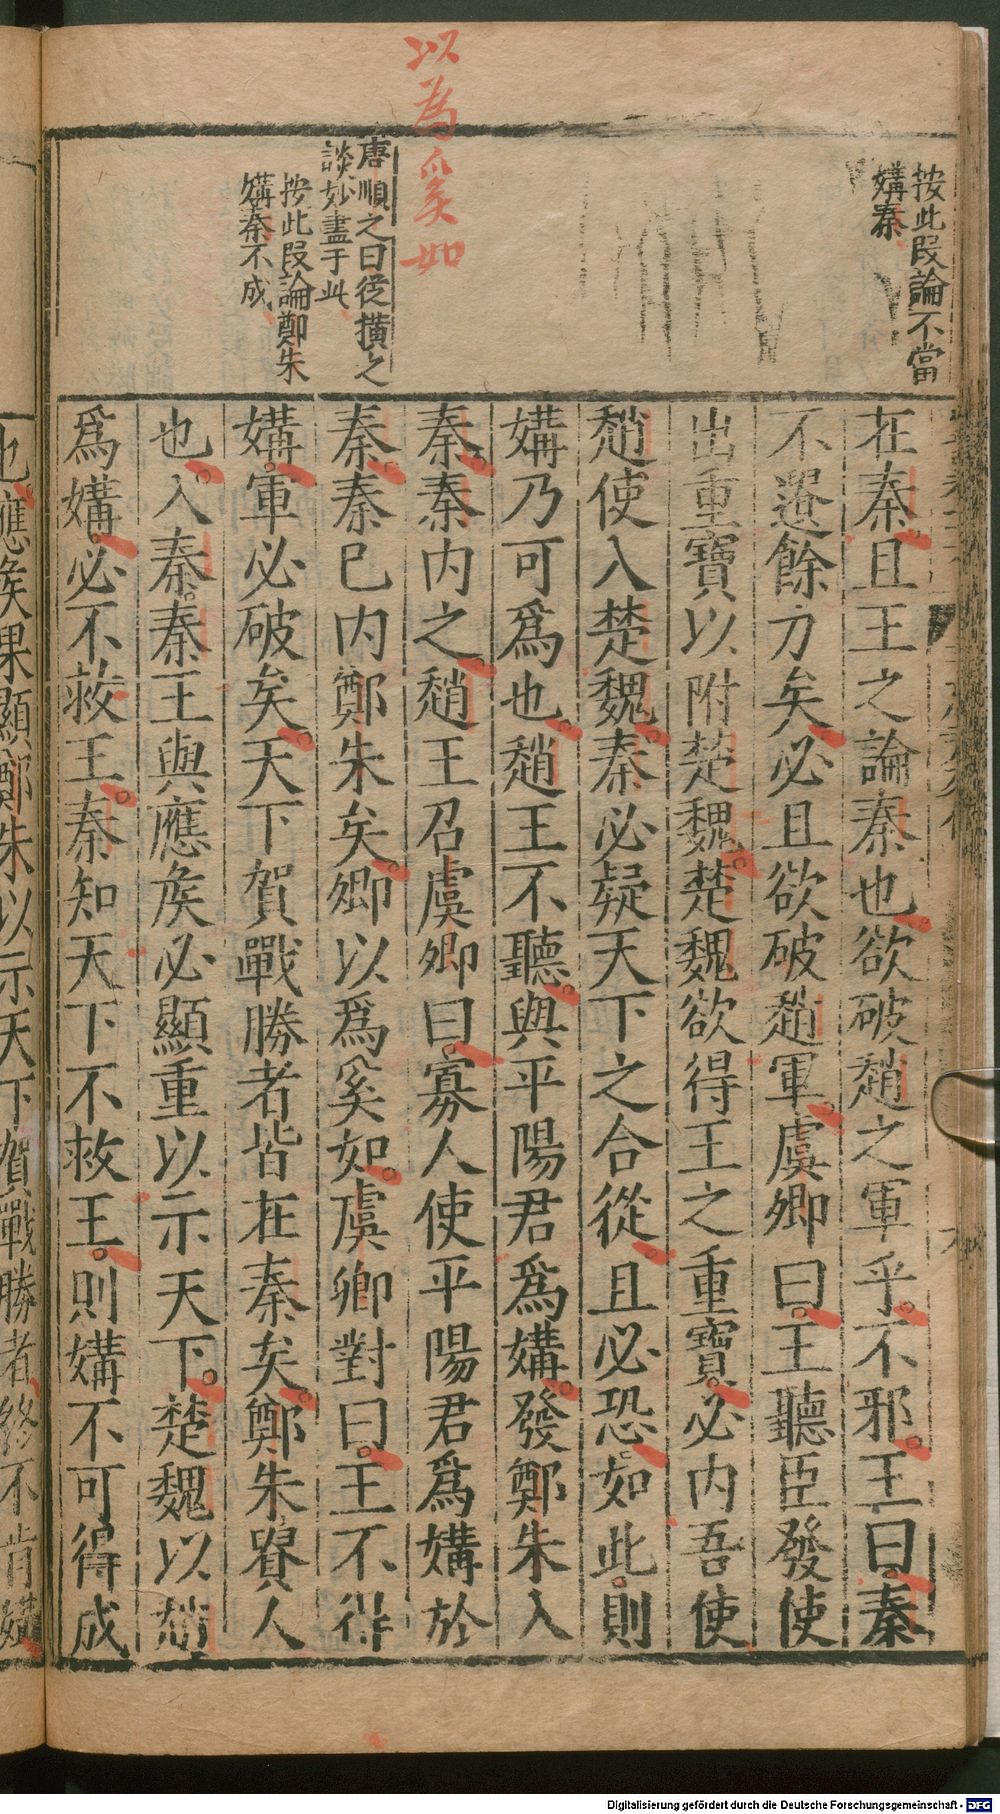 以為奚如
按此叚論不當
媾秦
唐順之曰從横之
談妙盡于此
按此叚論鄭朱
媾秦不成
在秦且王之論秦也欲破趙之軍乎不邪王曰秦
不遺餘力矣必且欲破趙軍虞卿曰王聽臣發使
出重寶以附楚魏楚魏欲得王之重寶必内吾使
趙使入楚魏秦必疑天下之合從且必恐如此則
媾乃可爲也趙王不聽與平陽君爲媾發鄭朱入
秦秦内之趙王召虞卿曰寡人使平陽君爲媾於
秦秦已内鄭朱矣卿以爲奚如虞卿對曰王不得
媾軍必破矣天下賀戰勝者皆在秦矣鄭朱貴人
也入秦秦王與應矦必顯重以示天下楚魏以趙
爲媾必不救王秦知天下不救王則媾不可得成
也應矦果顯鄭朱以示天下賀戰勝者終不肯媾
Digitalisierung gefördert durch die Deutsche Forschungsgemeinschaft - DFG